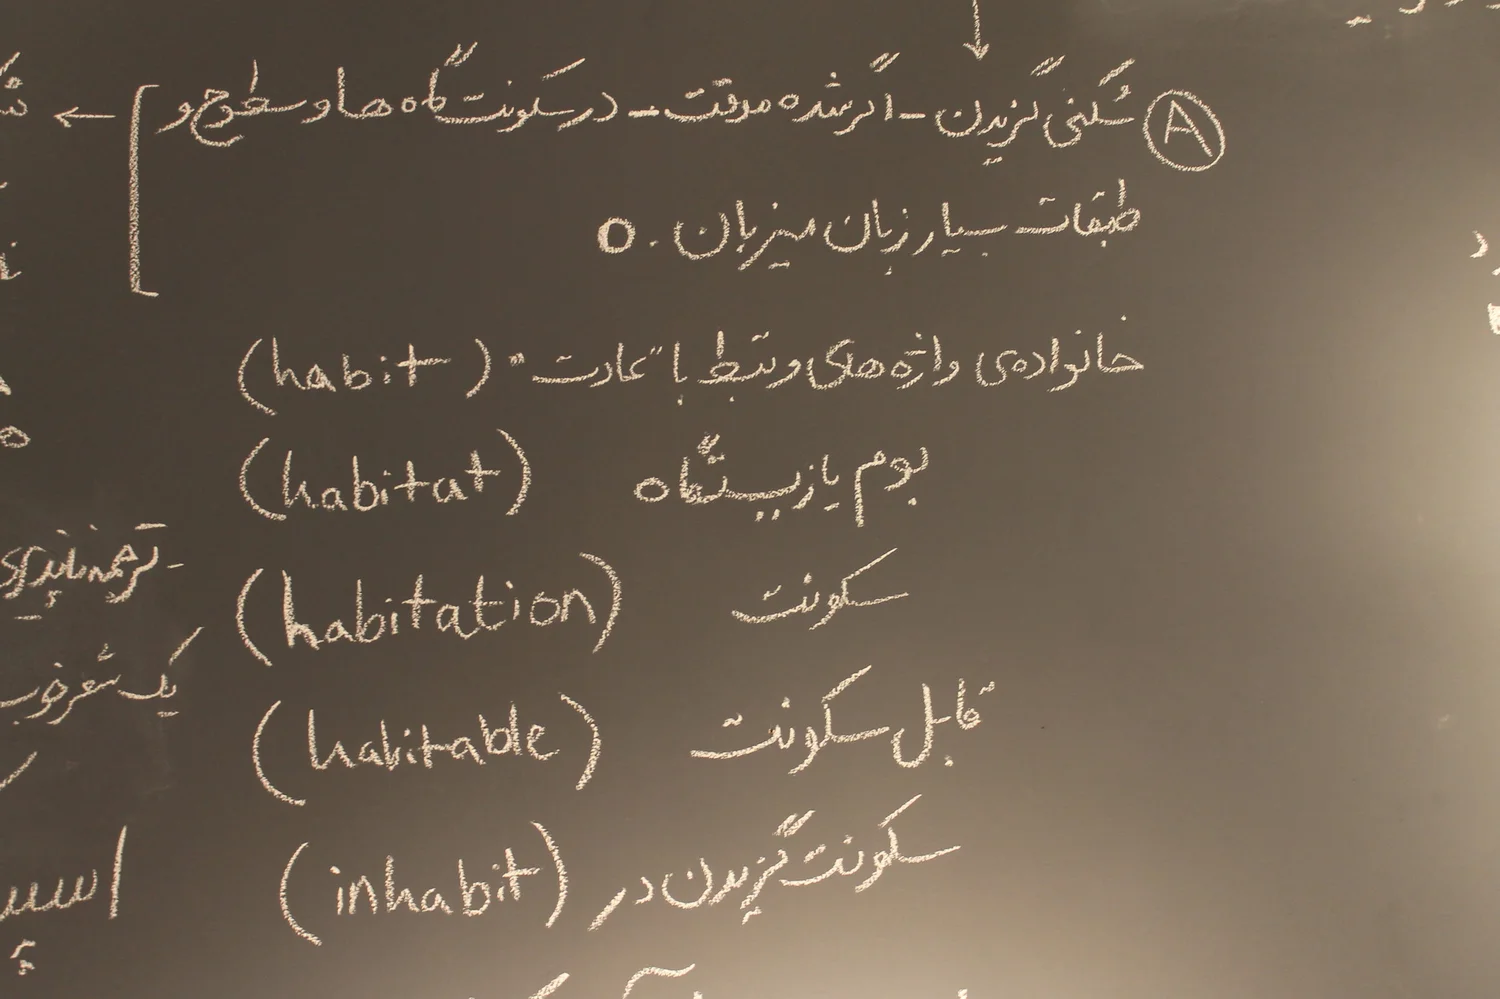 Ⓐ سُکنی گزیدن - اگر شده موقت - در سکونت گاه ها و سطوح و
طبقات بسیار زبان میزبان . o
خانواده‌ی واژه های مرتبط با "عادت" (habit)
بوم یا زیستگاه (habitat)
سکونت (habitation)
قابل سکونت (habitable)
سکونت گزیدن در (inhabit)
- ترجمه ناپذیری
یک شعر خوب